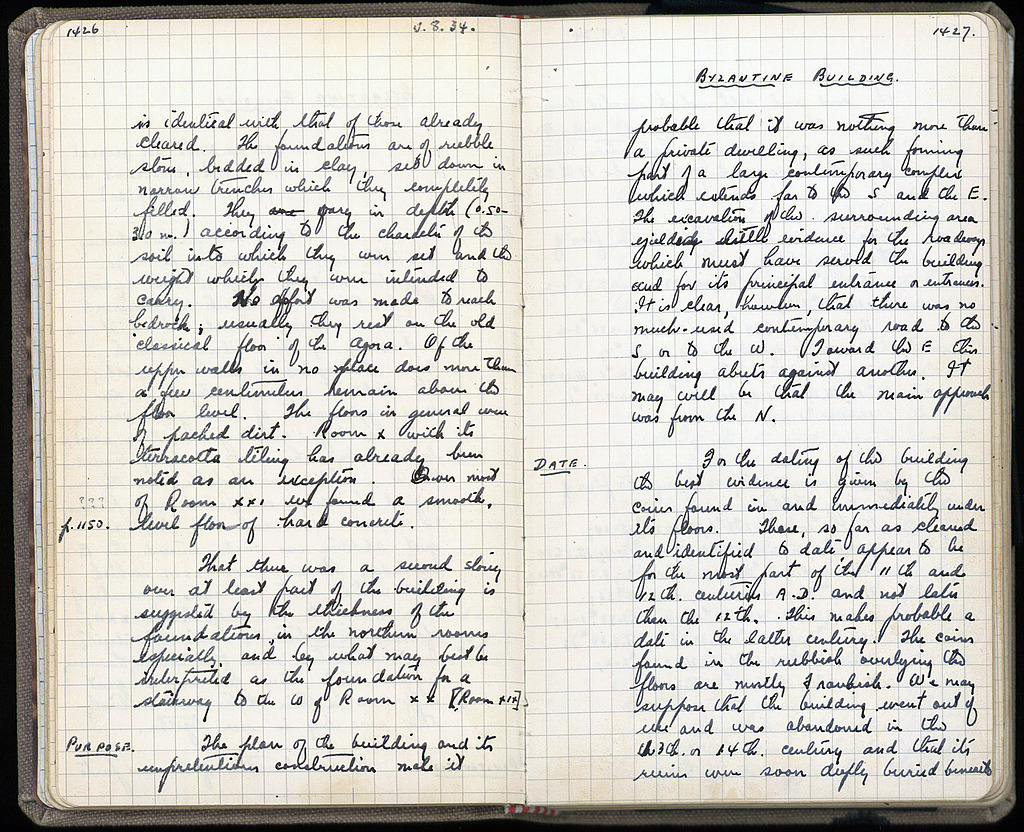 1426
5.8.34.
is identical with that of those already
cleared. The foundations are of rubble
stone, bedded in clay, set down in
narrow trenches which they completely
filled. They vary in depth (0.50-
3.0 m.) according to the character of the
soil into which they were set and the
weight which they were intended to
carry. No effort was made to reach
bedrock; usually they rest on the old
classical floor of the Agora. Of the
upper walls in no place does more than
a few centimetres remain above the
floor level. The floors in general were
of packed dirt. Room X with its
terracotta tiling has already been
noted as an exception. Over most
??? of Room XXI we found a smooth,
p. 1150. level floor of hard concrete.
That there was a second storey
over at least part of the building is
suggested by the thickness of the
foundations in the northern rooms
especially, and by what may best be
interpreted as the foundation for a
stairway to the W of Room XX [Room XIX].
PURPOSE. The plan of the building and its
unpretentious construction make it
1427.
BYZANTINE BUILDING.
probable that it was nothing more than
a private dwelling, as such forming
part of a large contemporary complex
which extends far to the S and the E.
The excavation of the surrounding area
yielded little evidence for the roadways
which must have served the building
and for its principal entrance or entrances.
It is clear, however, that there was no
much-used contemporary road to the
S or to the W. Toward the E this
building abuts against another. It
may well be that the main approach
was from the N.
DATE. For the dating of the building
the best evidence is given by the
coins found in and immediately under
its floors. These, so far as cleared
and identified to date appear to be
for the most part of the 11th and
12th. centuries A.D. and not later
than the 12th. This makes probable a
date in the latter century. The coins
found in the rubbish overlying the
floors are mostly Frankish. We may
suppose that the building went out of
use and was abandoned in the
13th. or 14th. century and that its
ruins were soon deeply buried beneath